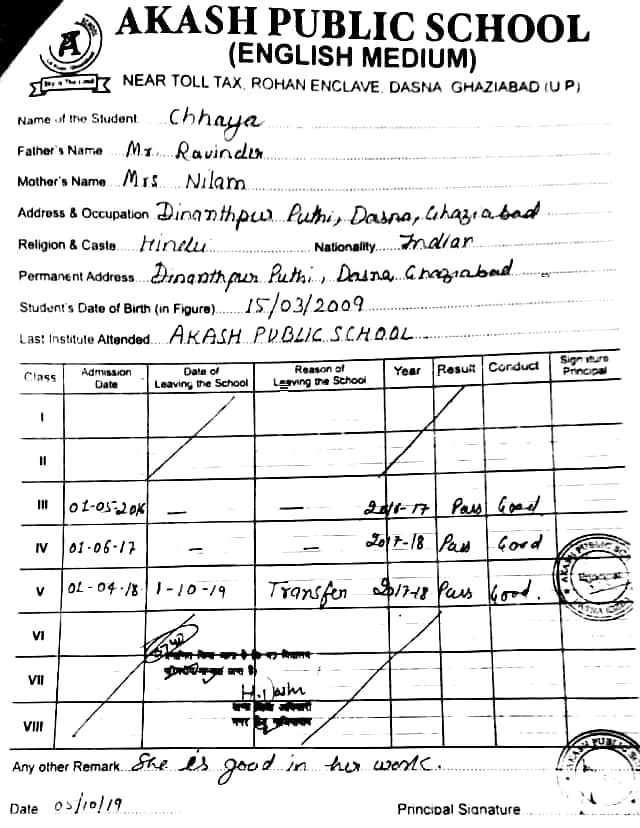 AKASH PUBLIC SCHOOL
(ENGLISH MEDIUM)
NEAR TOLL TAX, ROHAN ENCLAVE, DASNA GHAZIABAD (U P)
Name of the Student Chhaya
Father's Name Mr. Ravinder
Mother's Name Mrs Nilam
Address & Occupation Dinanthpur Puthi, Dasna, Ghaziabad
Religion & Caste Hindu Nationality Indian
Permanent Address Dinanthpur Puthi, Dasna Ghaziabad
Student's Date of Birth (in Figure) 15/03/2009
Last Institute Attended AKASH PUBLIC SCHOOL
Class Admission Date Date of Leaving the School Reason of Leaving the School Year Result Conduct Signature Principal
I
II
III 01-05-2016 — — 2016-17 Pass Good
IV 01-06-17 — — 2017-18 Pass Good
V 02-04-18 1-10-19 Transfer 2017-18 Pass Good.
VI
VII
VIII
AKASH PUBLIC
Principal
Any other Remark She is good in her work.
Date 03/10/19 Principal Signature